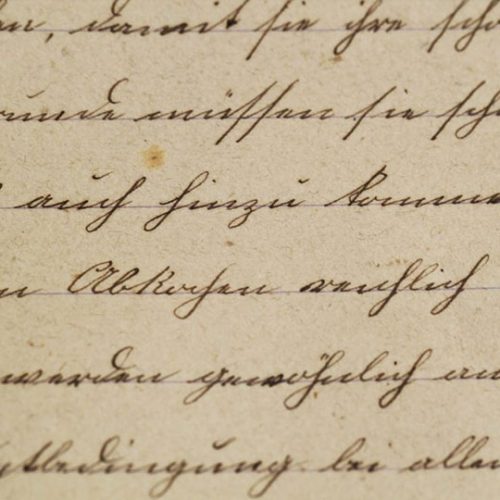 en, damit sie ihre sch
runde müssen sie sch
auch hinzu komme
n Abkochen reichlich
werden gewöhnlich an
ptbedingung bei alle